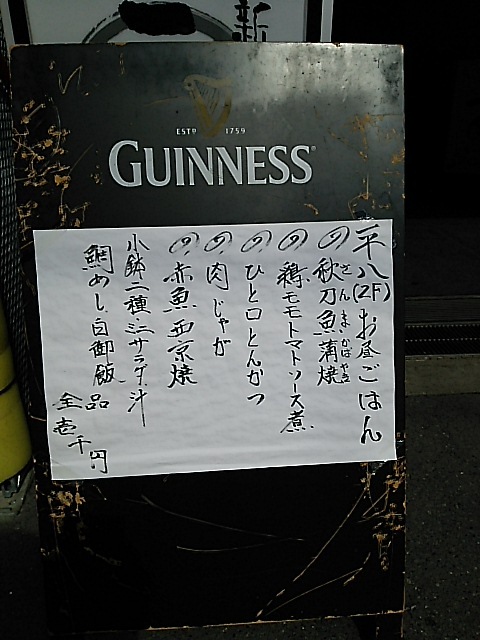 新
ESTD 1759
GUINNESS
平八(2F)お昼ごはん
の 秋刀魚蒲焼
さんまかばやき
の 鶏モモトマトソース煮
の ひと口とんかつ
の 肉じゃが
の 赤魚西京焼
小鉢二種ミニサラダ、汁
鯛めし白御飯
全品
壱千円